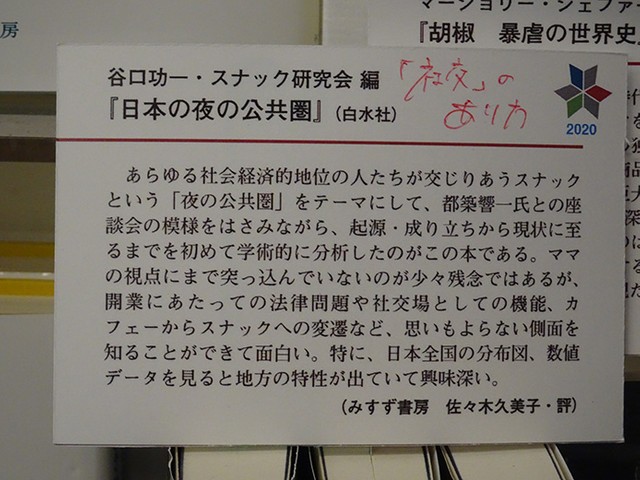 房
マージョリー・シェファー
『胡椒　暴虐の世界史
谷口功一・スナック研究会 編
『日本の夜の公共圏』（白水社）
「社交」の
ありか
2020
あらゆる社会経済的地位の人たちが交じりあうスナック
という「夜の公共圏」をテーマにして、都築響一氏との座
談会の模様をはさみながら、起源・成り立ちから現状に至
るまでを初めて学術的に分析したのがこの本である。ママ
の視点にまで突っ込んでいないのが少々残念ではあるが、
開業にあたっての法律問題や社交場としての機能、カ
フェーからスナックへの変遷など、思いもよらない側面を
知ることができて面白い。特に、日本全国の分布図、数値
データを見ると地方の特性が出ていて興味深い。
（みすず書房　佐々木久美子・評）